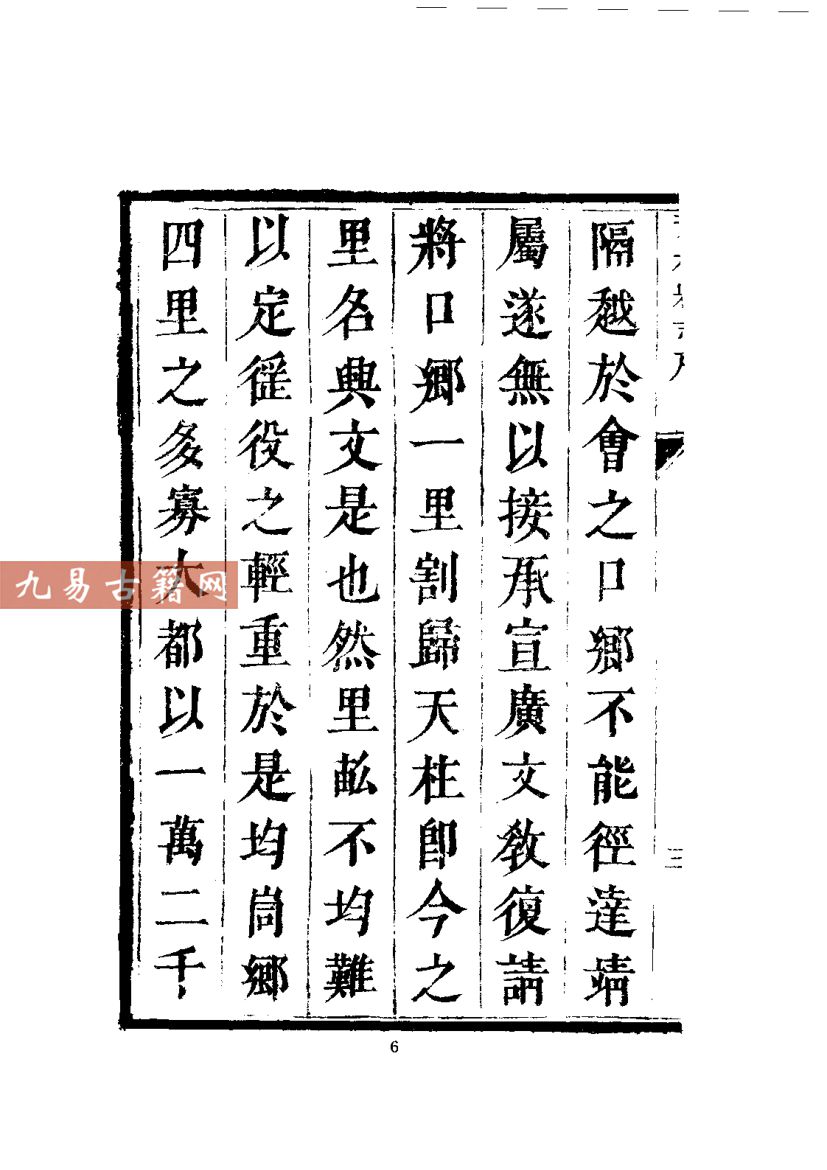 隔越於會之口鄉不能徑達靖
屬遂無以接承宣廣文敎復請
將口鄉一里割歸天柱卽今之
里名典文是也然里畝不均難
以定徭役之輕重於是均峝鄉
四里之多寡大都以一萬二千
三
九易古籍网
6